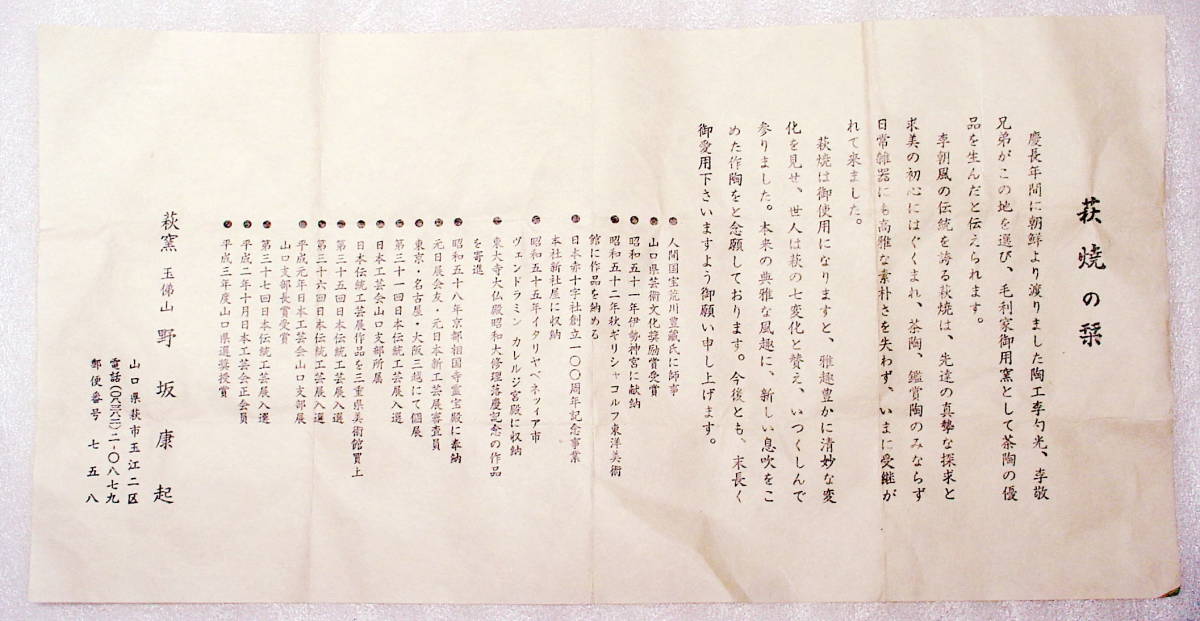 萩焼の栞
慶長年間に朝鮮より渡りました陶工李勺光、李敬
兄弟がこの地を選び、毛利家御用窯として茶陶の優
品を生んだと伝えられます。
李朝風の伝統を誇る萩焼は、先達の真摯な探求と
求美の初心にはぐくまれ、茶陶、鑑賞陶のみならず
日常雑器にも高雅な素朴さを失わず、いまに受継が
れて来ました。
萩焼は御使用になりますと、雅趣豊かに清妙な変
化を見せ、世人は萩の七変化と賛え、いつくしんで
参りました。本来の典雅な風趣に、新しい息吹をこ
めた作陶をと念願しております。今後とも、末長く
御愛用下さいますよう御願い申し上げます。
● 人間国宝荒川豊蔵氏に師事
● 山口県芸術文化奨励賞受賞
● 昭和五十一年伊勢神宮に献納
● 昭和五十二年秋ギリシャコルフ東洋美術
館に作品を納める
● 日本赤十字社創立一〇〇周年記念事業
本社新社屋に収納
● 昭和五十五年イタリヤベネッィア市
ヴェンドラミン カレルルジ宮殿に収納
● 東大寺大仏殿昭和大修理落慶記念の作品
を寄進
● 昭和五十八年京都相国寺霊宝殿に奉納
● 元日展会友・元日本新工芸展審査員
● 東京・名古屋・大阪三越にて個展
● 第三十一回日本伝統工芸展入選
● 日本工芸会山口支部所属
● 日本伝統工芸展作品を三重県美術館買上
● 第三十五回日本伝統工芸展入選
● 第三十六回日本伝統工芸展入選
● 平成元年日本工芸会山口支部展
山口支部長賞受賞
● 第三十七回日本伝統工芸展入選
● 平成二年十月日本工芸会正会員
● 平成三年度山口県選奨授賞
萩窯 玉佛山 野坂康起
山口県萩市玉江二区
電話(〇八三八二)二‐〇八七九
郵便番号 七五八